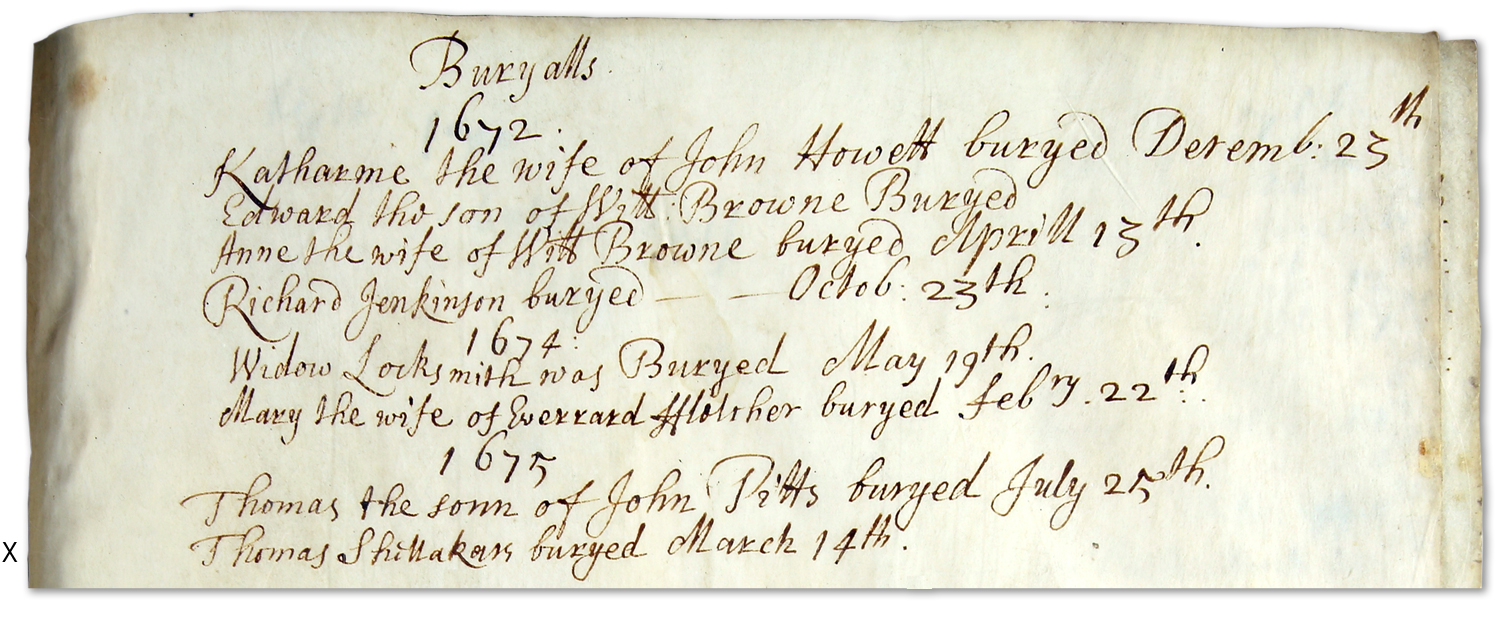 Buryalls
1672
Katharine the wife of John Howett buryed Decemb: 23th
Edward the son of Will: Browne Buryed
Anne the wife of Will Browne buryed Aprill 13th.
Richard Jenkinson buryed — — Octob: 23th.
1674:
Widow Locksmith was Buryed May 19th.
Mary the wife of Everrard buryed Febry. 22th.
1675
Thomas the sonn of John Pitts buryed July 25th.
Thomas Shillakars buryed March 14th.
X